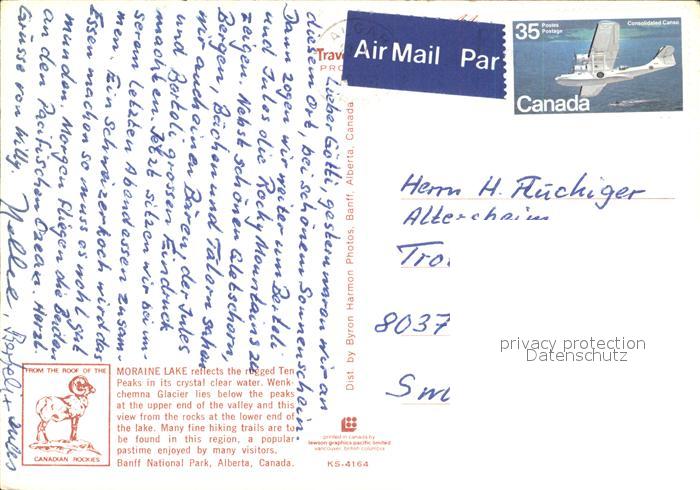 Lieber Götti, gestern waren wir an
diesem Ort, bei schönem Sonnenschein.
Dann zogen wir weiter um Bertoli
und Jules die Rocky Mountains zu
zeigen. Nebst schönen Gletschern,
Bergen, Bächen und Tälern sahen
wir auch einen Bären, der Jules
und Bertoli grossen Eindruck
machten. Jetzt sitzen wir bei un-
serem letzten Abendessen zusam-
men. Ein Schweizerkoch wird das
Essen machen so muss es wohl gut
munden. Morgen fliegen die Beiden
an den Pacifischen Ozean. Herzl.
Grüsse von Willy,
Nellie, Bertoli + Jules
Air Mail Par
35 Postes
Postage
Consolidated Canso
Canada
Herrn H. Flückiger
Altersheim
8037
privacy protection
Datenschutz
Dist. by Byron Harmon Photos, Banff, Alberta, Canada
FROM THE ROOF OF THE
CANADIAN ROCKIES
MORAINE LAKE reflects the rugged Ten
Peaks in its crystal clear water. Wenk-
chemna Glacier lies below the peaks
at the upper end of the valley and this
view from the rocks at the lower end of
the lake. Many fine hiking trails are to
be found in this region, a popular
pastime enjoyed by many visitors.
Banff National Park, Alberta, Canada.
printed in canada by
lawson graphics pacific limited
vancouver, british columbia
KS-4164